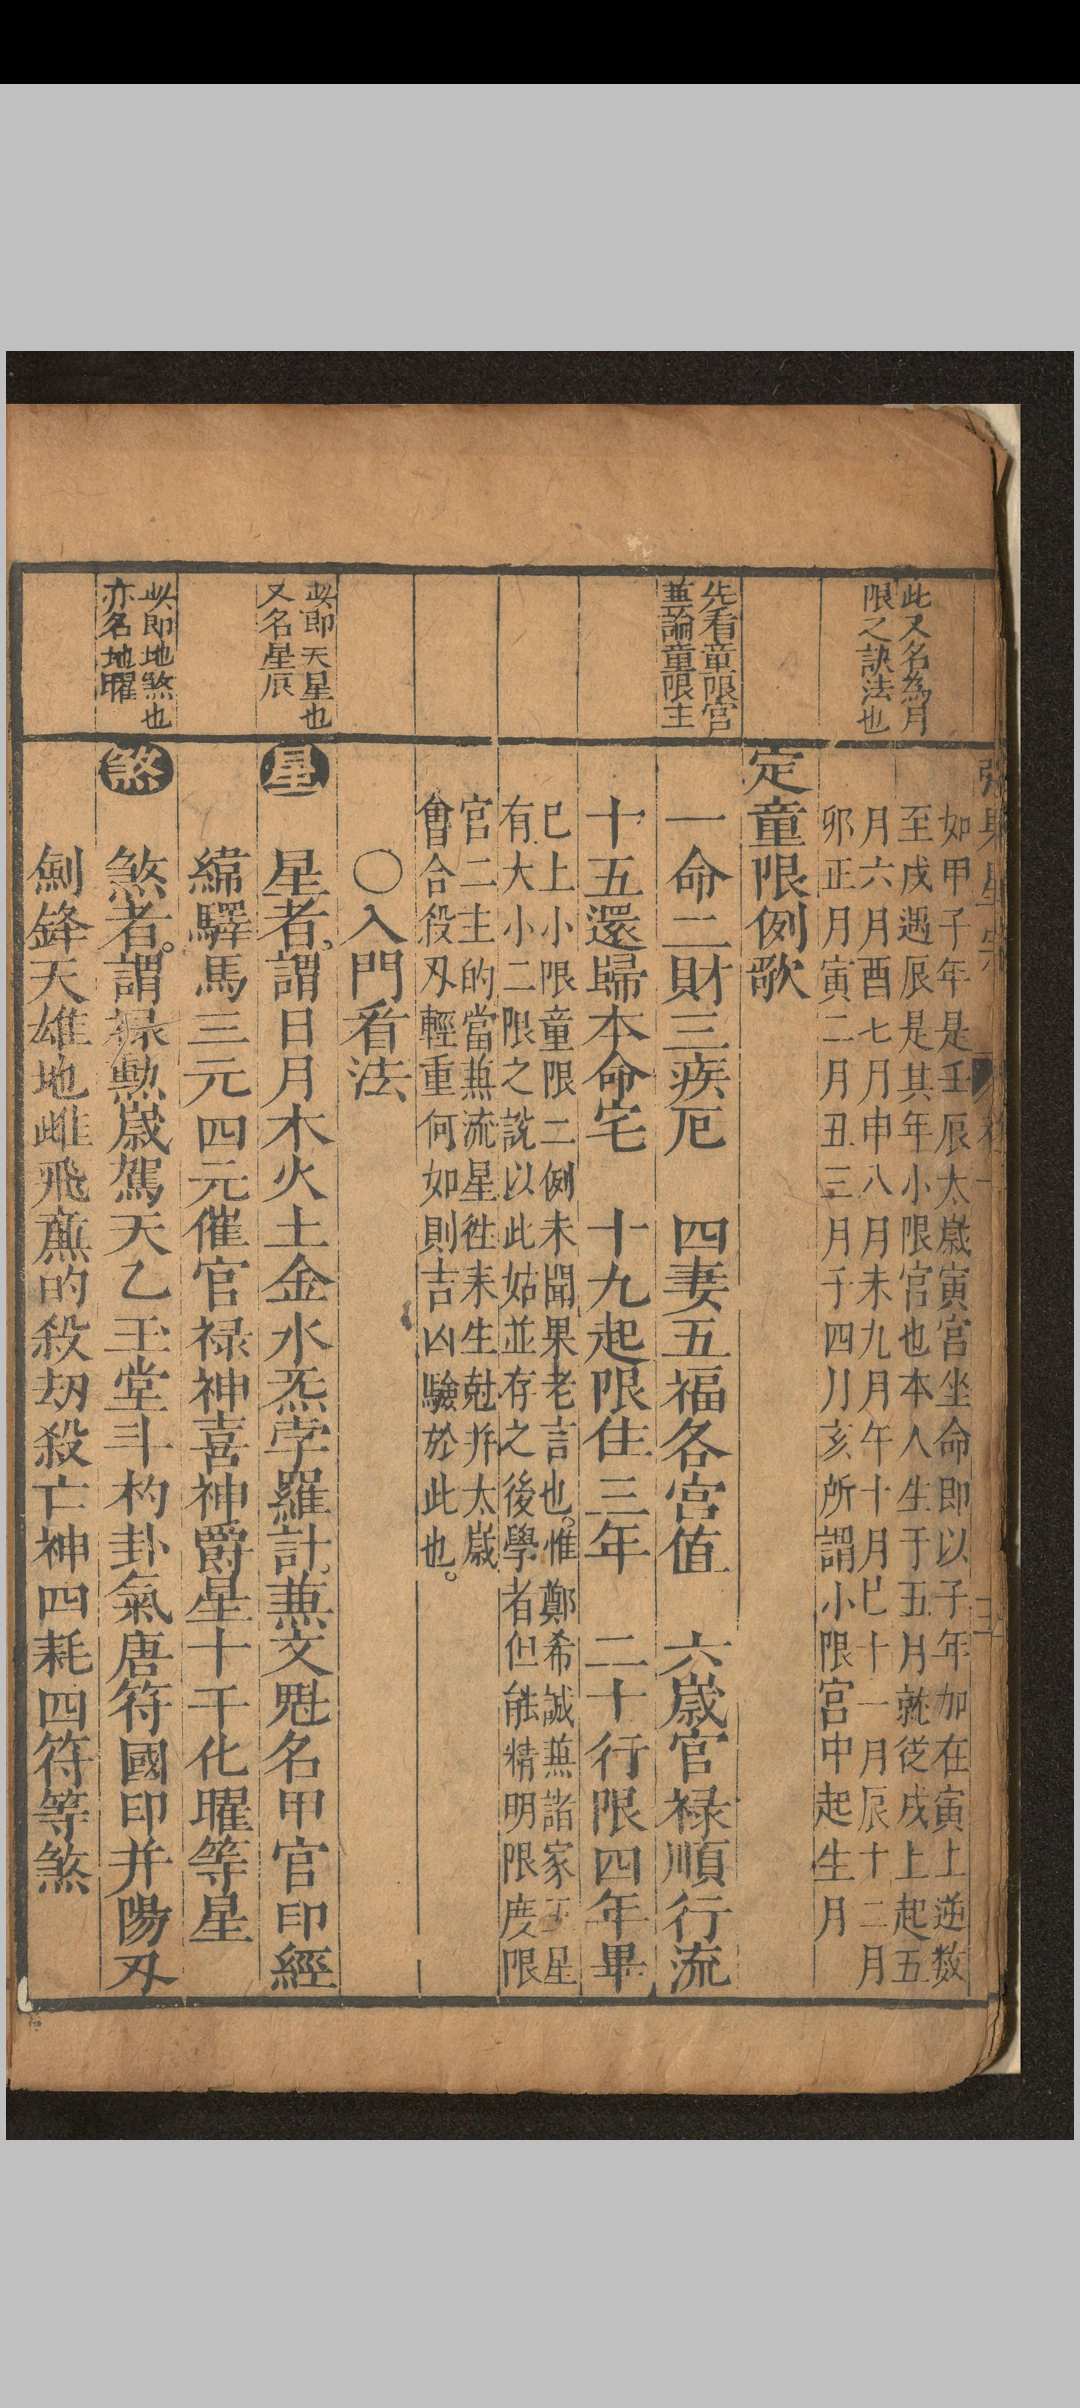 此又名為月
限之訣法也
如甲子年是壬辰太歲寅宮坐命即以子年加在寅上逆数
至戌遇辰是其年小限宮也本人生于五月就従戌上起五
月六月酉七月申八月未九月午十月巳十一月辰十二月
卯正月寅二月丑三月子四月亥所謂小限宮中起生月
定童限例歌
先看童限宮
兼論童限主
一命二財三疾厄　四妻五福各宮值　六歲官禄順行流
十五還歸本命宅　十九起限住三年　二十行限四年畢
已上小限童限二例未聞果老言也。惟鄭希誠兼諸家五星
有大小二限之說以此姑並存之後學者但能精明限度限
官二主的當兼流星徃来生尅并太歲
會合殺刄輕重何如則吉凶驗於此也。
○入門看法
此即天星也
又名星辰
星
星者。謂日月木火土金水炁孛羅計。兼文魁名甲官印經
緯驛馬三元四元催官禄神喜神爵星十干化曜等星
此即地煞也
亦名地曜
煞
煞者。謂禄勲歲駕天乙玉堂斗杓卦氣唐符國印并陽刄
劍鋒天雄地雌飛廉的殺劫殺亡神四耗四符等煞